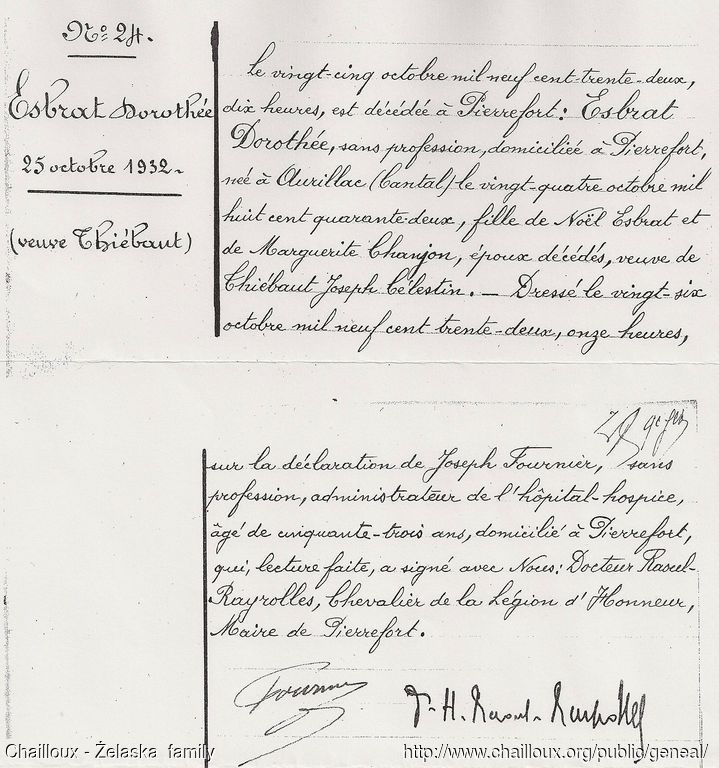 N° 24.
Esbrat Dorothée
25 octobre 1932.
(veuve Thiébaut)
Le vingt-cinq octobre mil neuf cent-trente-deux,
dix heures, est décédée à Pierrefort: Esbrat
Dorothée, sans profession, domiciliée à Pierrefort,
née à Aurillac (Cantal) le vingt-quatre octobre mil
huit cent quarante-deux, fille de Noël Esbrat et
de Marguerite Chanjon, époux décédés, veuve de
Thiébaut Joseph Célestin. — Dressé le vingt-six
octobre mil neuf cent trente-deux, onze heures,
sur la déclaration de Joseph Fournier, sans
profession, administrateur de l'hôpital-hospice,
âgé de cinquante-trois ans, domicilié à Pierrefort,
qui, lecture faite, a signé avec Nous: Docteur Raoul-
Rayrolles, Chevalier de la Légion d'Honneur,
Maire de Pierrefort.
Fournier
Dr H. Raoul-Rayrolles
Chailloux - Želaska family
http://www.chailloux.org/public/geneal/